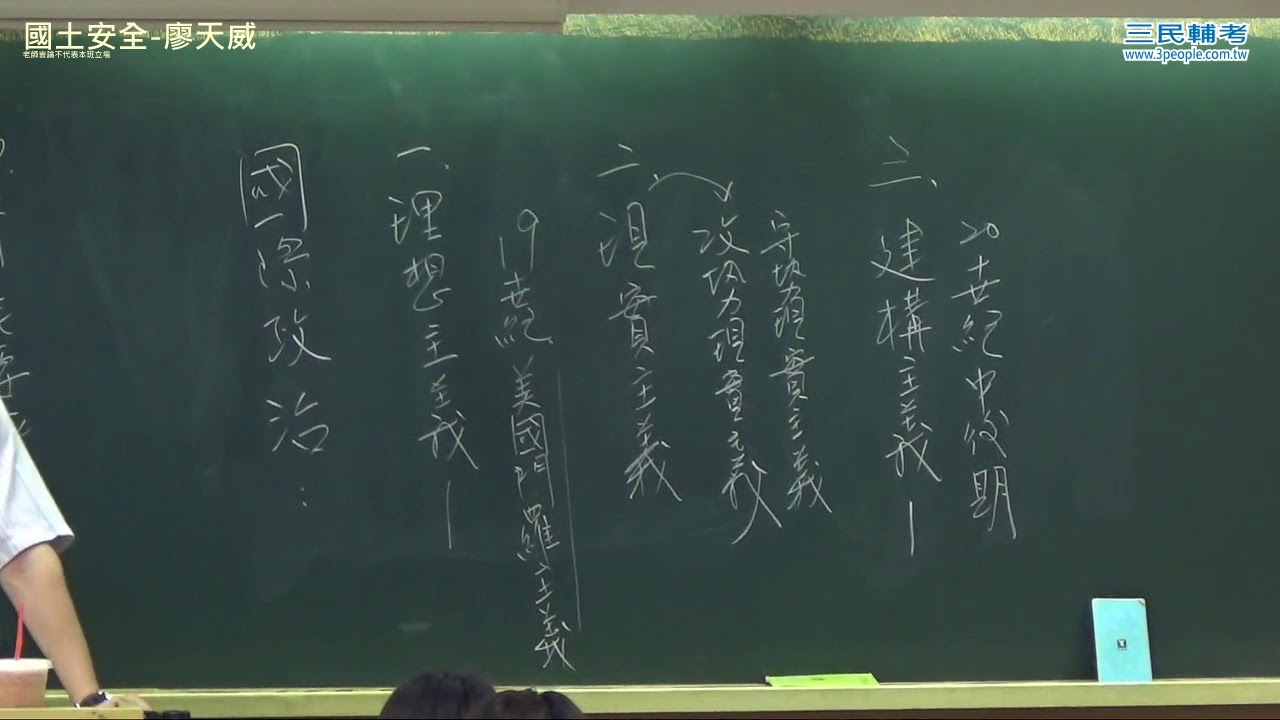 國土安全-廖天威
老師言論不代表本班立場
三民輔考
www.3people.com.tw
國際政治：
一、理想主義—
19世紀美國門羅主義
二、現實主義
攻勢現實主義
守勢現實主義
三、建構主義—
20世紀中後期